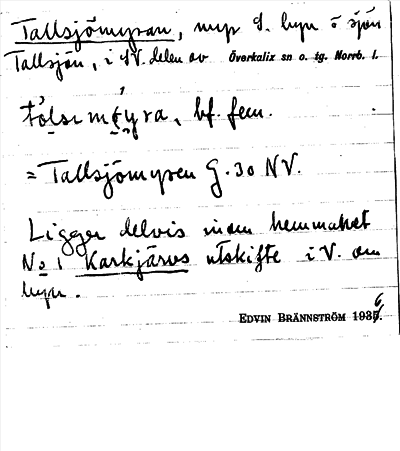 Tallsjömyran, myr S. byn o sjön
Tallsjön, i SV. delen av Överkalix sn o. tg. Norrb. l.
bf. fem.
= Tallsjömyren G. 30 NV.
Ligger delvis inom hemmanet
No 1 Karkjärvs utskifte i V. om
byn.
EDVIN BRÄNNSTRÖM 1936.